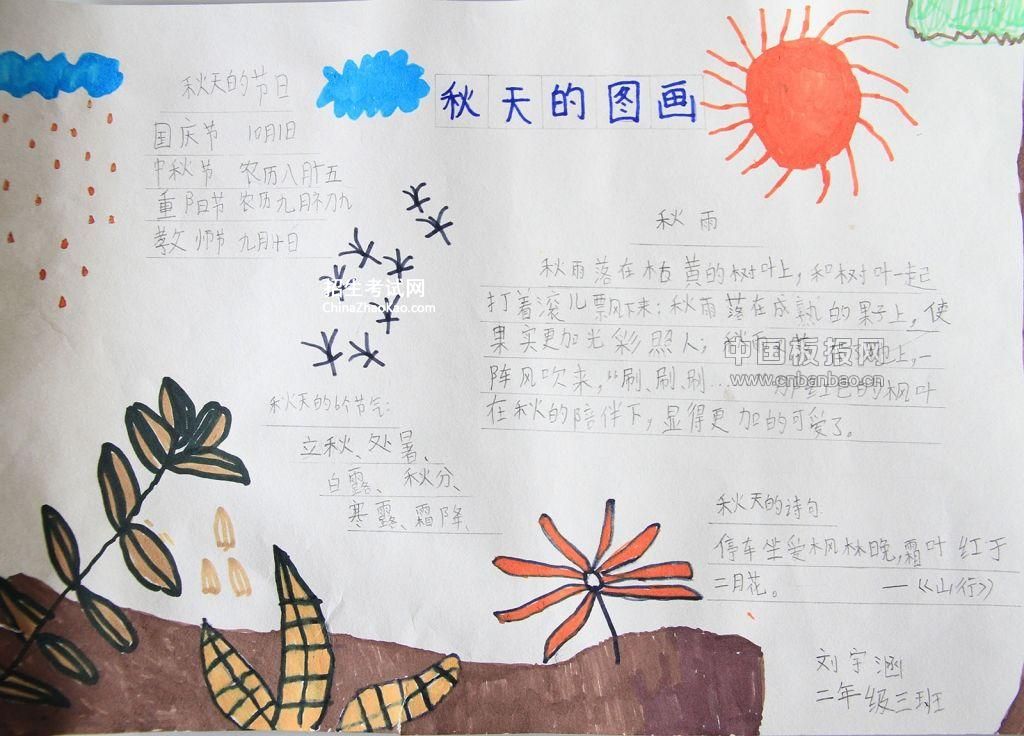 秋天的图画
秋天的节日
国庆节 10月1日
中秋节 农历八月十五
重阳节 农历九月初九
教师节 九月十日
招生考试网
ChinaZhaokao.com
秋天的6个节气:
立秋、处暑、
白露、秋分、
寒露、霜降、
秋雨
秋雨落在枯黄的树叶上,和树叶一起
打着滚儿飘下来;秋雨落在成熟的果子上,使
果实更加光彩照人;秋雨落在 上,一
阵风吹来,“刷、刷、刷... 红色的枫叶
在秋的陪伴下,显得更加的可爱了。
中国板报网
www.cnbanbao.cn
秋天的诗句
停车坐爱枫林晚,霜叶红于
二月花。 —《山行》
刘宇涵
二年级三班